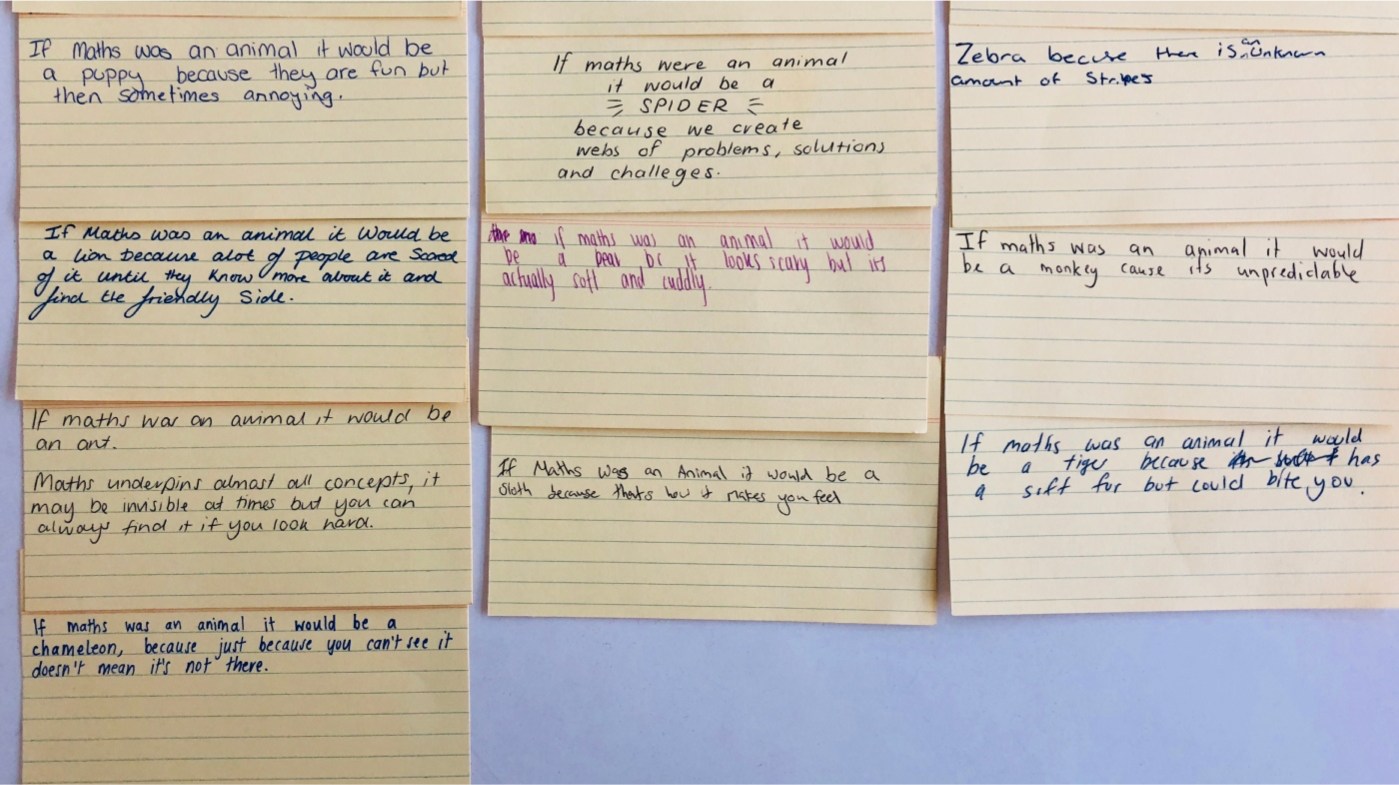 If Maths was an animal it would be
a puppy because they are fun but
then sometimes annoying.
If Maths was an animal it would be
a lion because alot of people are scared
of it until they know more about it and
find the friendly side.
If maths was an animal it would be
an ant.
Maths underpins almost all concepts, it
may be invisible at times but you can
always find it if you look hard.
If maths was an animal it would be a
chameleon, because just because you can't see it
doesn't mean it's not there.
If maths were an animal
it would be a
SPIDER
because we create
webs of problems, solutions
and challeges.
if maths was an animal it would
be a bear bc it looks scary but its
actually soft and cuddly.
If Maths was an Animal it would be a
Sloth because thats how it makes you feel
Zebra becuse then is an unknown
amount of Stripes
If maths was an animal it would
be a monkey cause its unpredictable
If maths was an animal it would
be a tiger because has
a soft fur but could bite you.